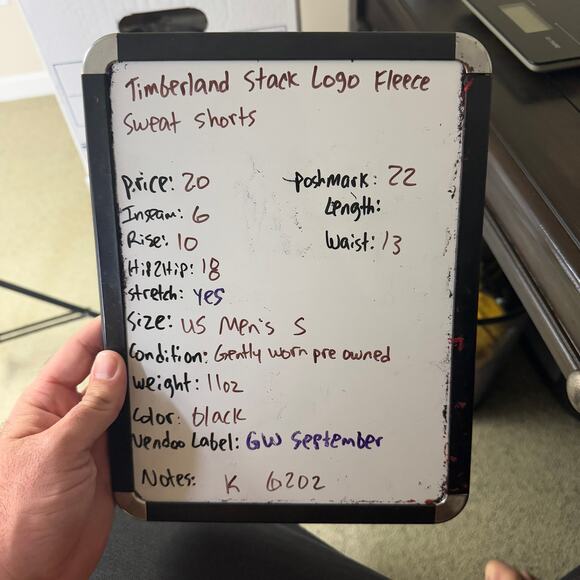 Timberland Stack Logo Fleece
Sweat shorts
price: 20
poshmark: 22
Inseam: 6
Length:
Rise: 10
Waist: 13
Hip2Hip: 18
stretch: yes
Size: US Men's S
Condition: Gently worn pre owned
weight: 11oz
Color: black
Vendoo Label: GW September
Notes: K 6202